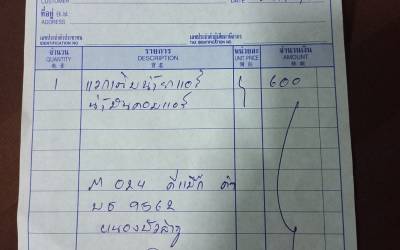 CUSTOMER
DATE
ที่อยู่
ADDRESS
เลขประจำตัวประชาชน
IDENTIFICATION NO
เลขประจำตัวผู้เสียภาษีอากร
TAX IDENTIFICATION NO
จำนวน รายการ หน่วยละ จำนวนเงิน
QUANTITY DESCRIPTION UNIT PRICE AMOUNT
1 แวคเติมน้ำยาแอร์ 600
น้ำมันคอมแอร์
ดีแม็ก ดำ
9562
หนองบัวลำภู